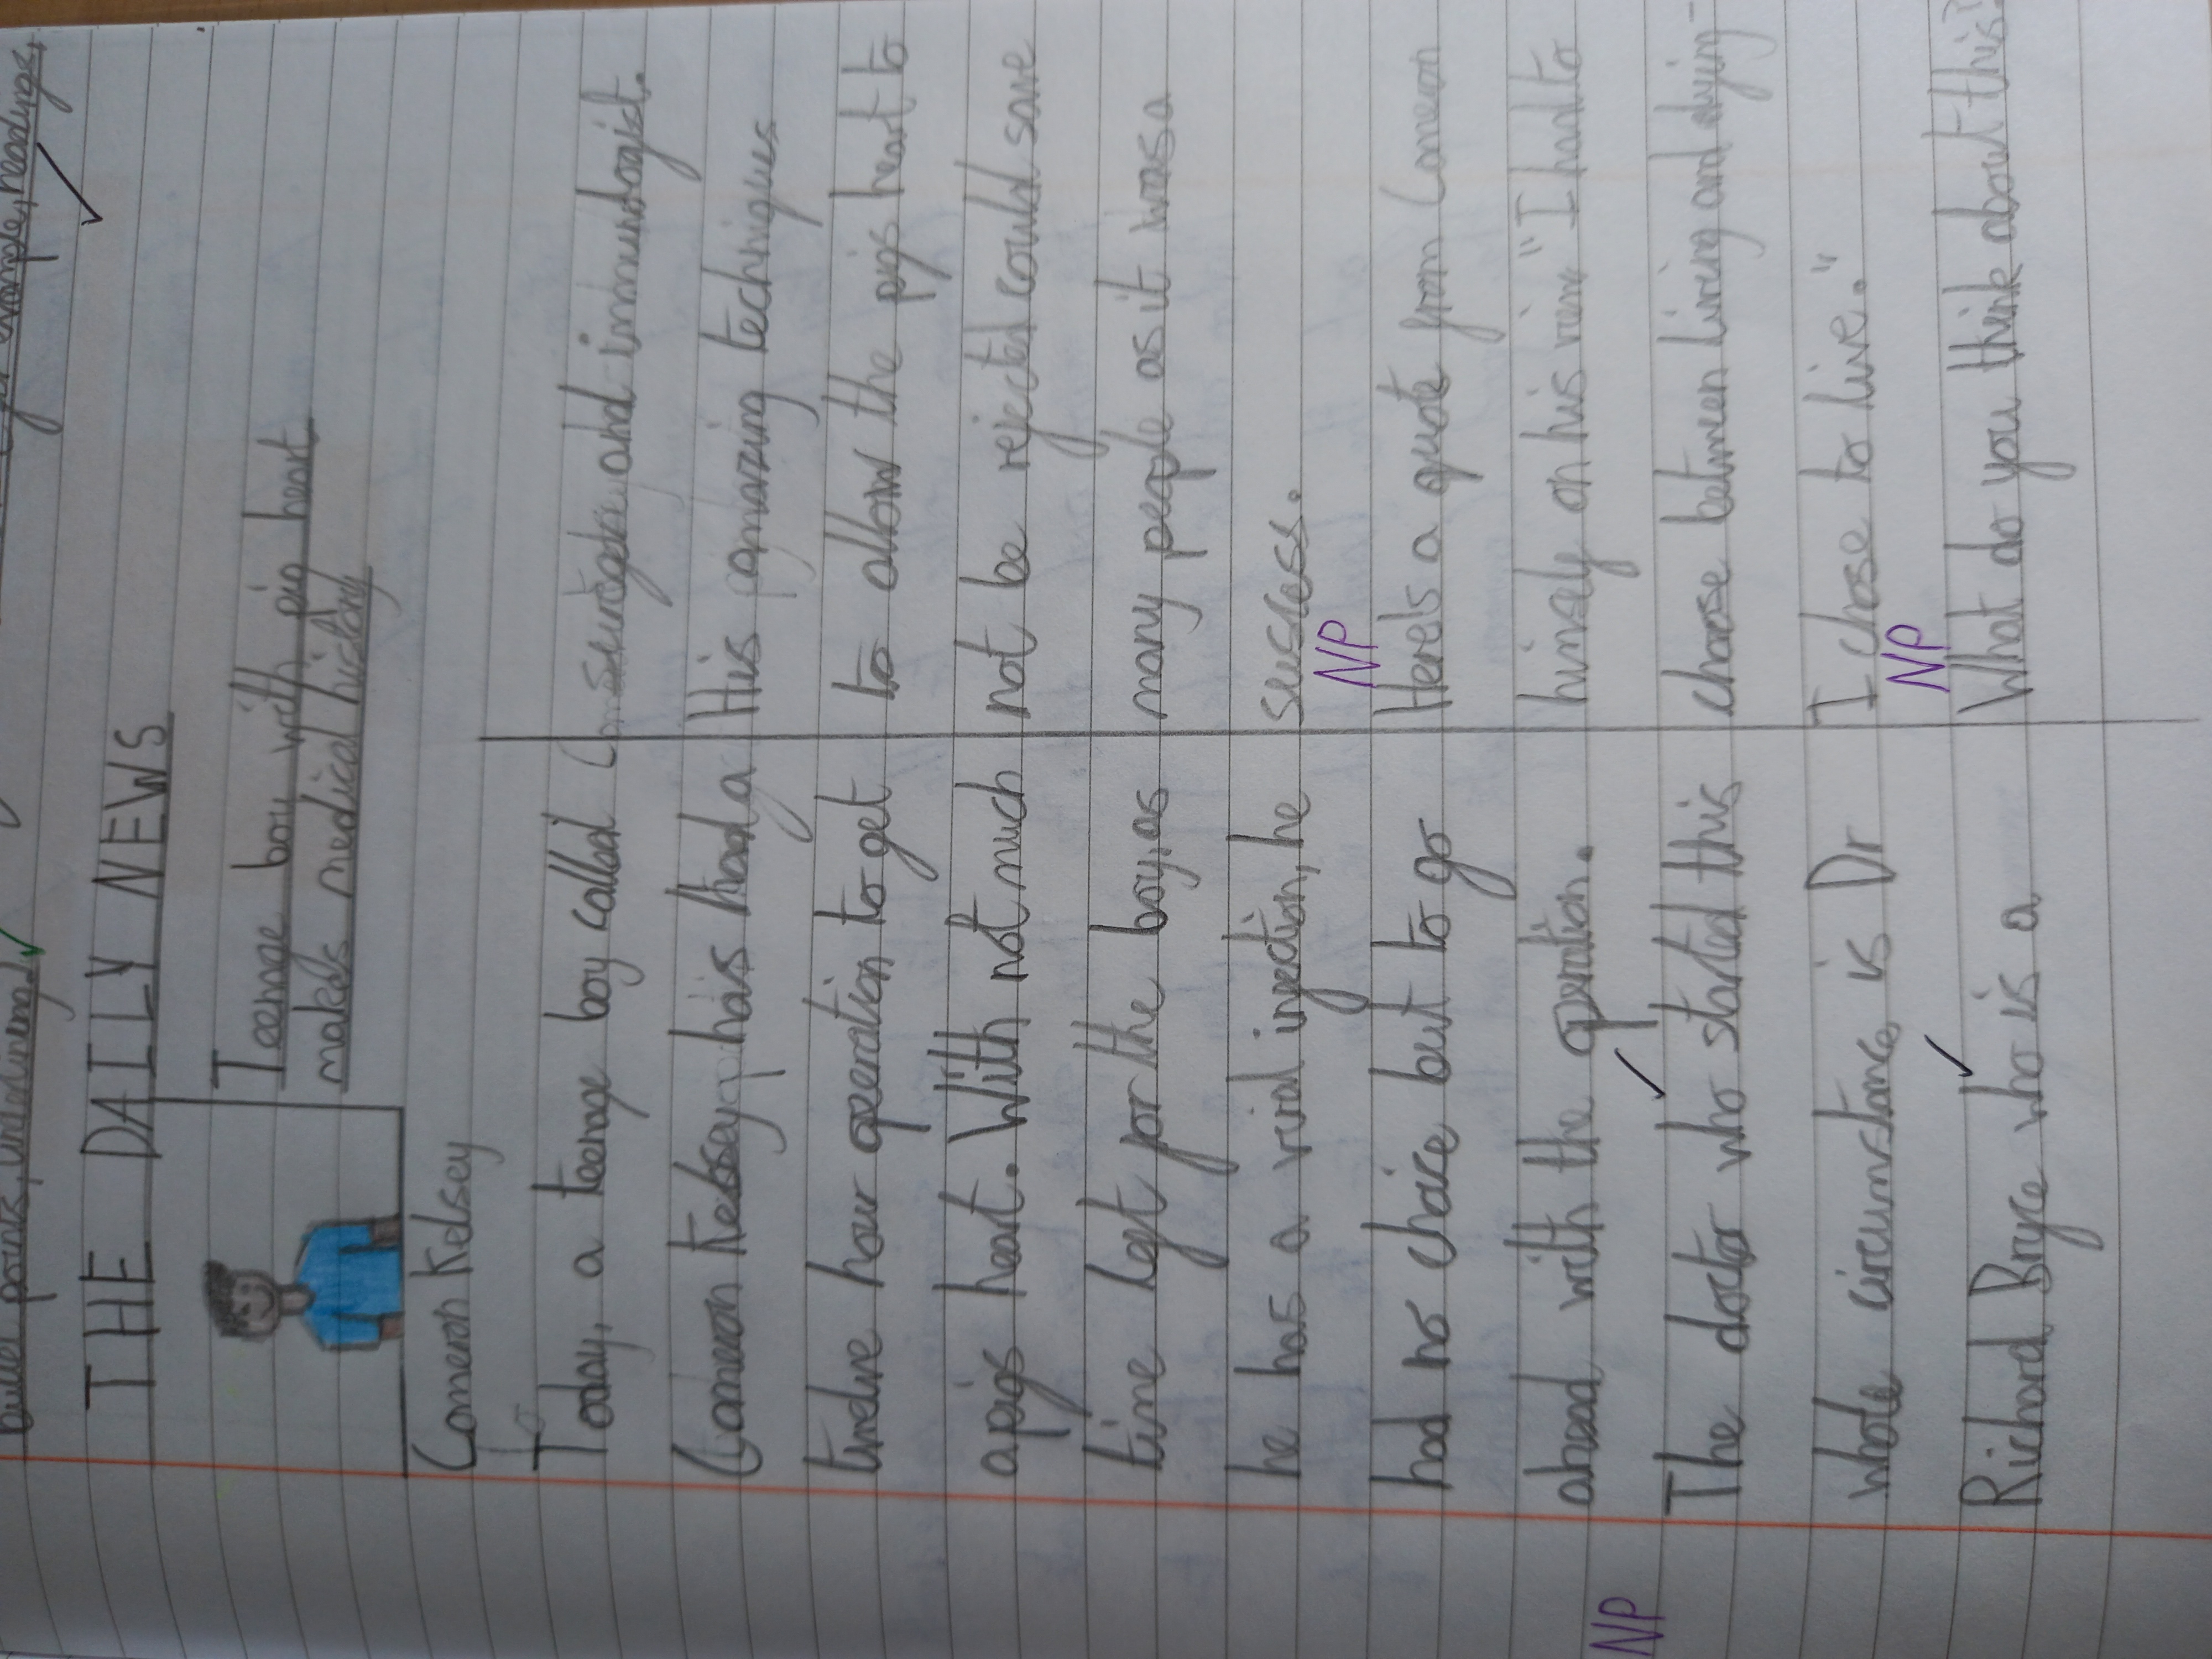 for example, headings,
bullet points, underlining.
THE DAILY NEWS
Teenage boy with pig heart
makes medical history
Cameron Kelsey
To
Today, a teenage boy called
Cameron Kelsey has had a
twelve hour operation to get
a pigs heart. With not much
time left for the boy, as
he has a viral injection, he
had no choice but to go
ahead with the operation.
NP
The doctor who started this
whole circumstance is Dr
Richard Bryce who is a
surgeon and immunologist.
His amazing techniques
to allow the pigs heart to
not be rejected could save
many people as it was a
success.
NP
Here's a quote from Cameron
himself on his view "I had to
choose between living and dying -
I chose to live."
NP
What do you think about this?